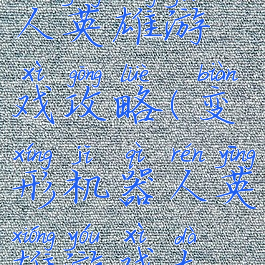 人英雄游
xì gōng lüè biàn
戏攻略(变
xíng jī qì rén yīng
形机器人英
xióng yóu xì dà